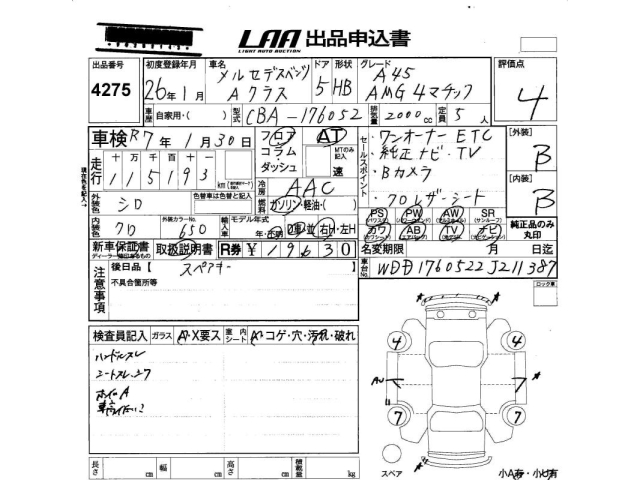 LAA 出品申込書
LIGHT AUTO AUCTION
出品番号 4275
初度登録年月 26年1月
車名 メルセデスベンツ Aクラス
ドア 5
形状 HB
グレード A45 AMG 4マチック
評価点 4
車歴 自家用・( )
型式 CBA-176052
排気量 2000cc
定員 5人
車検 R7年1月30日
走行 十万千百十 115193 km
フロア・コラム・ダッシュ
AT
MTのみ記入
速
セールスポイント
・ワンオーナー ETC
・純正ナビ・TV
・Bカメラ
・クロレザーシート
[外装] B
[内装] B
外装色 シロ
色替車は色替と記入
冷房 AAC
燃料 ガソリン・軽油・( )
内装色 クロ
外装カラーNo. 650
輸入車 モデル年式
右H・左H
PS PW AW SR
カワ AB TV ナビ
純正品のみ丸印
新車保証書 取扱説明書
ディーラー捺印あるもの
R券 ¥ 19630
名変期限 月 日迄
注意事項
後日品【 スペアキー 】
不具合箇所等
車台No. WDD1760522J211387
ロック車
検査員記入
ガラス A・X要ス
室内シート A・コゲ・穴・汚れ・破れ
ハンドルスレ
シートスレ、シワ
ホイルA
4 4
7 7
スペア
長さ cm 幅 cm 高さ cm 積載量 kg